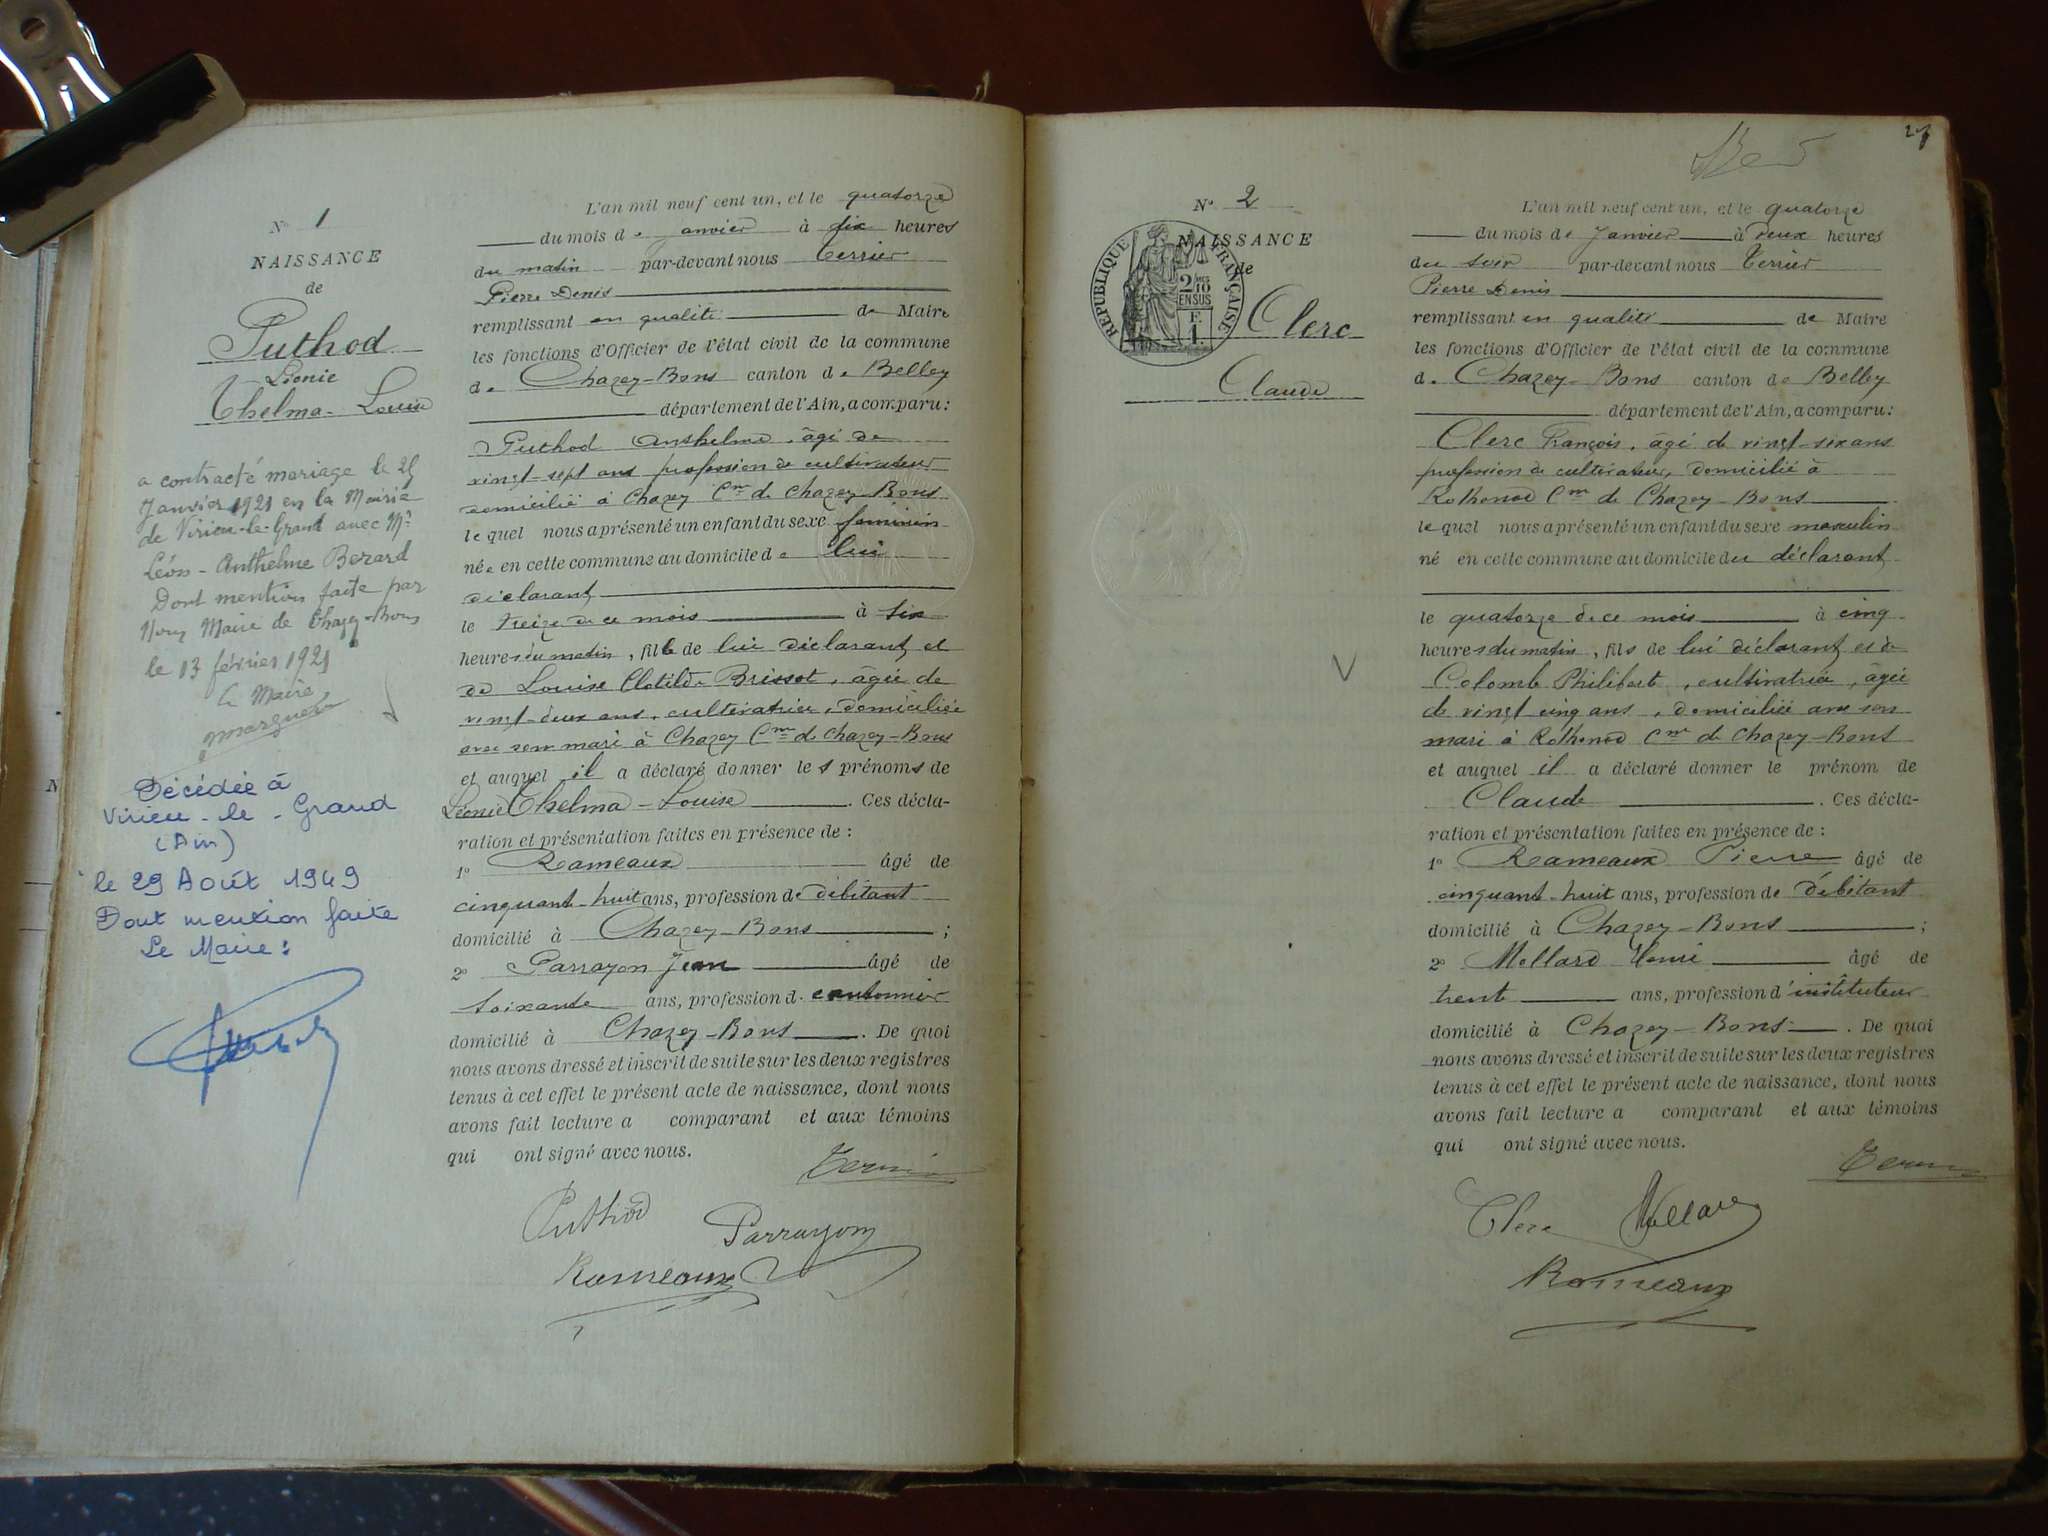 N° 1
NAISSANCE
de
Puthod
Léonie
Thelma-Louise
a contracté mariage le 25
Janvier 1921 en la Mairie
de Virieu-le-Grand avec Mr
Léon-Anthelme Berard
Dont mention faite par
Nous Maire de Chazey-Bons
le 13 février 1921
Le Maire
Décédée à
Virieu-le-Grand
(Ain)
le 29 Août 1949
Dont mention faite
Le Maire:
L'an mil neuf cent un, et le quatorze
du mois de janvier à dix heures
du matin par-devant nous Terrier
Pierre Denis
remplissant en qualité de Maire
les fonctions d'Officier de l'état civil de la commune
de Chazey-Bons canton de Belley
département de l'Ain, a comparu:
Puthod Anthelme, âgé de
vingt-sept ans profession de cultivateur
domicilié à Chazey Cne de Chazey-Bons
lequel nous a présenté un enfant du sexe féminin
née en cette commune au domicile de lui
déclarant
le treize de ce mois à six
heures du matin, fille de lui déclarant et
de Louise Clotilde Brissot, âgée de
vingt-deux ans, cultivatrice, domiciliée
avec son mari à Chazey Cne de Chazey-Bons
et auquel il a déclaré donner les prénoms de
Léonie Thelma-Louise. Ces décla-
ration et présentation faites en présence de:
1° Rameaux âgé de
cinquante-huit ans, profession de débitant
domicilié à Chazey-Bons;
2° Parrayon Jean âgé de
soixante ans, profession de cantonnier
domicilié à Chazey-Bons. De quoi
nous avons dressé et inscrit de suite sur les deux registres
tenus à cet effet le présent acte de naissance, dont nous
avons fait lecture a comparant et aux témoins
qui ont signé avec nous.
Terrier
Puthod Parrayon
Rameaux
N° 2
NAISSANCE
de
RÉPUBLIQUE FRANÇAISE
2/10 EN SUS
F. 1.
Clerc
Claude
L'an mil neuf cent un, et le quatorze
du mois de Janvier à deux heures
du soir par-devant nous Terrier
Pierre Denis
remplissant en qualité de Maire
les fonctions d'Officier de l'état civil de la commune
de Chazey-Bons canton de Belley
département de l'Ain, a comparu:
Clerc François, âgé de vingt-six ans
profession de cultivateur, domicilié à
Rothonod Cne de Chazey-Bons
lequel nous a présenté un enfant du sexe masculin
né en cette commune au domicile du déclarant
le quatorze de ce mois à cinq
heures du matin, fils de lui déclarant et de
Colomb Philiberte, cultivatrice, âgée
de vingt cinq ans, domiciliée avec son
mari à Rothonod Cne de Chazey-Bons
et auquel il a déclaré donner le prénom de
Claude. Ces décla-
ration et présentation faites en présence de:
1° Rameaux Pierre âgé de
cinquante-huit ans, profession de débitant
domicilié à Chazey-Bons;
2° Mollard Henri âgé de
trente ans, profession d'instituteur
domicilié à Chazey-Bons. De quoi
nous avons dressé et inscrit de suite sur les deux registres
tenus à cet effet le présent acte de naissance, dont nous
avons fait lecture a comparant et aux témoins
qui ont signé avec nous.
Terrier
Clerc Mollard
Rameaux